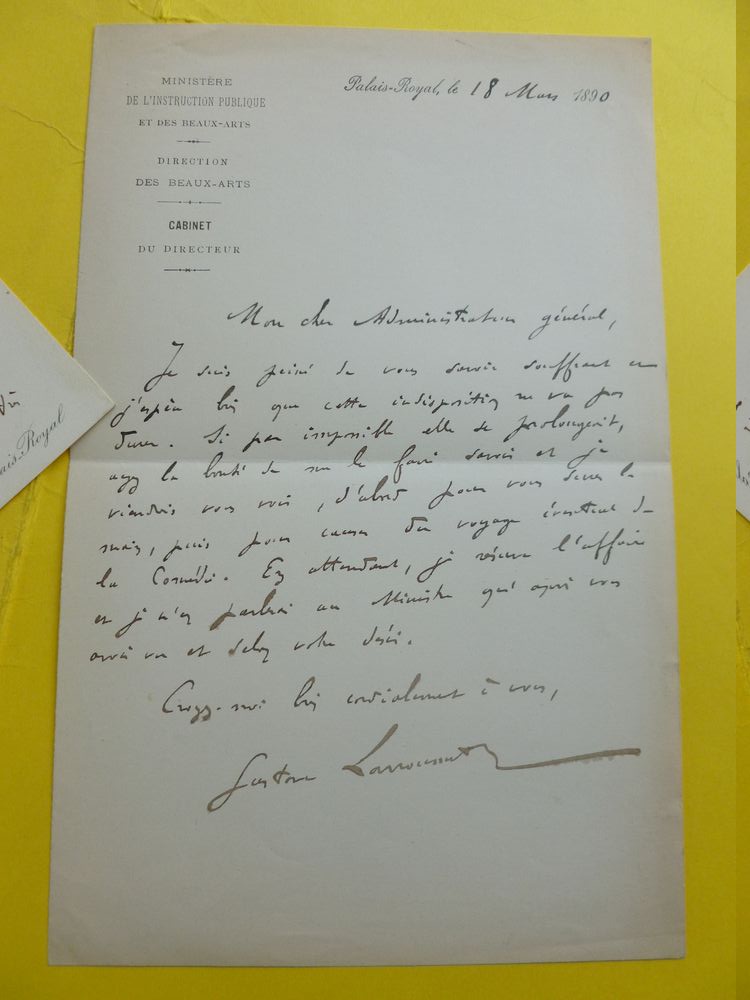 MINISTÈRE
DE L'INSTRUCTION PUBLIQUE
ET DES BEAUX-ARTS
DIRECTION
DES BEAUX-ARTS
CABINET
DU DIRECTEUR
Palais-Royal, le 18 Mars 1890
Mon cher Administrateur général,
Je suis peiné de vous savoir souffrant et
j'espère bien que cette indisposition ne va pas
durer. Si par impossible elle se prolongeait,
ayez la bonté de me le faire savoir et je
viendrais vous voir, d'abord pour vous serrer la
main, puis pour causer du voyage éventuel de
la Comédie. En attendant, je réserve l'affaire
et je n'en parlerai au Ministre qu'après vous
avoir vu et selon votre désir.
Croyez-moi bien cordialement à vous,
Gustave Larroumet
ais-Royal